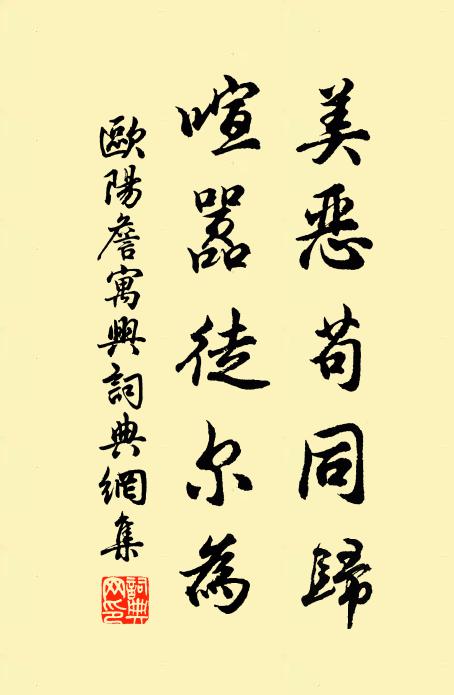 美惡苟同歸
喧嚣徒尔為
歐陽詹寓興詞典網集
詞典網印